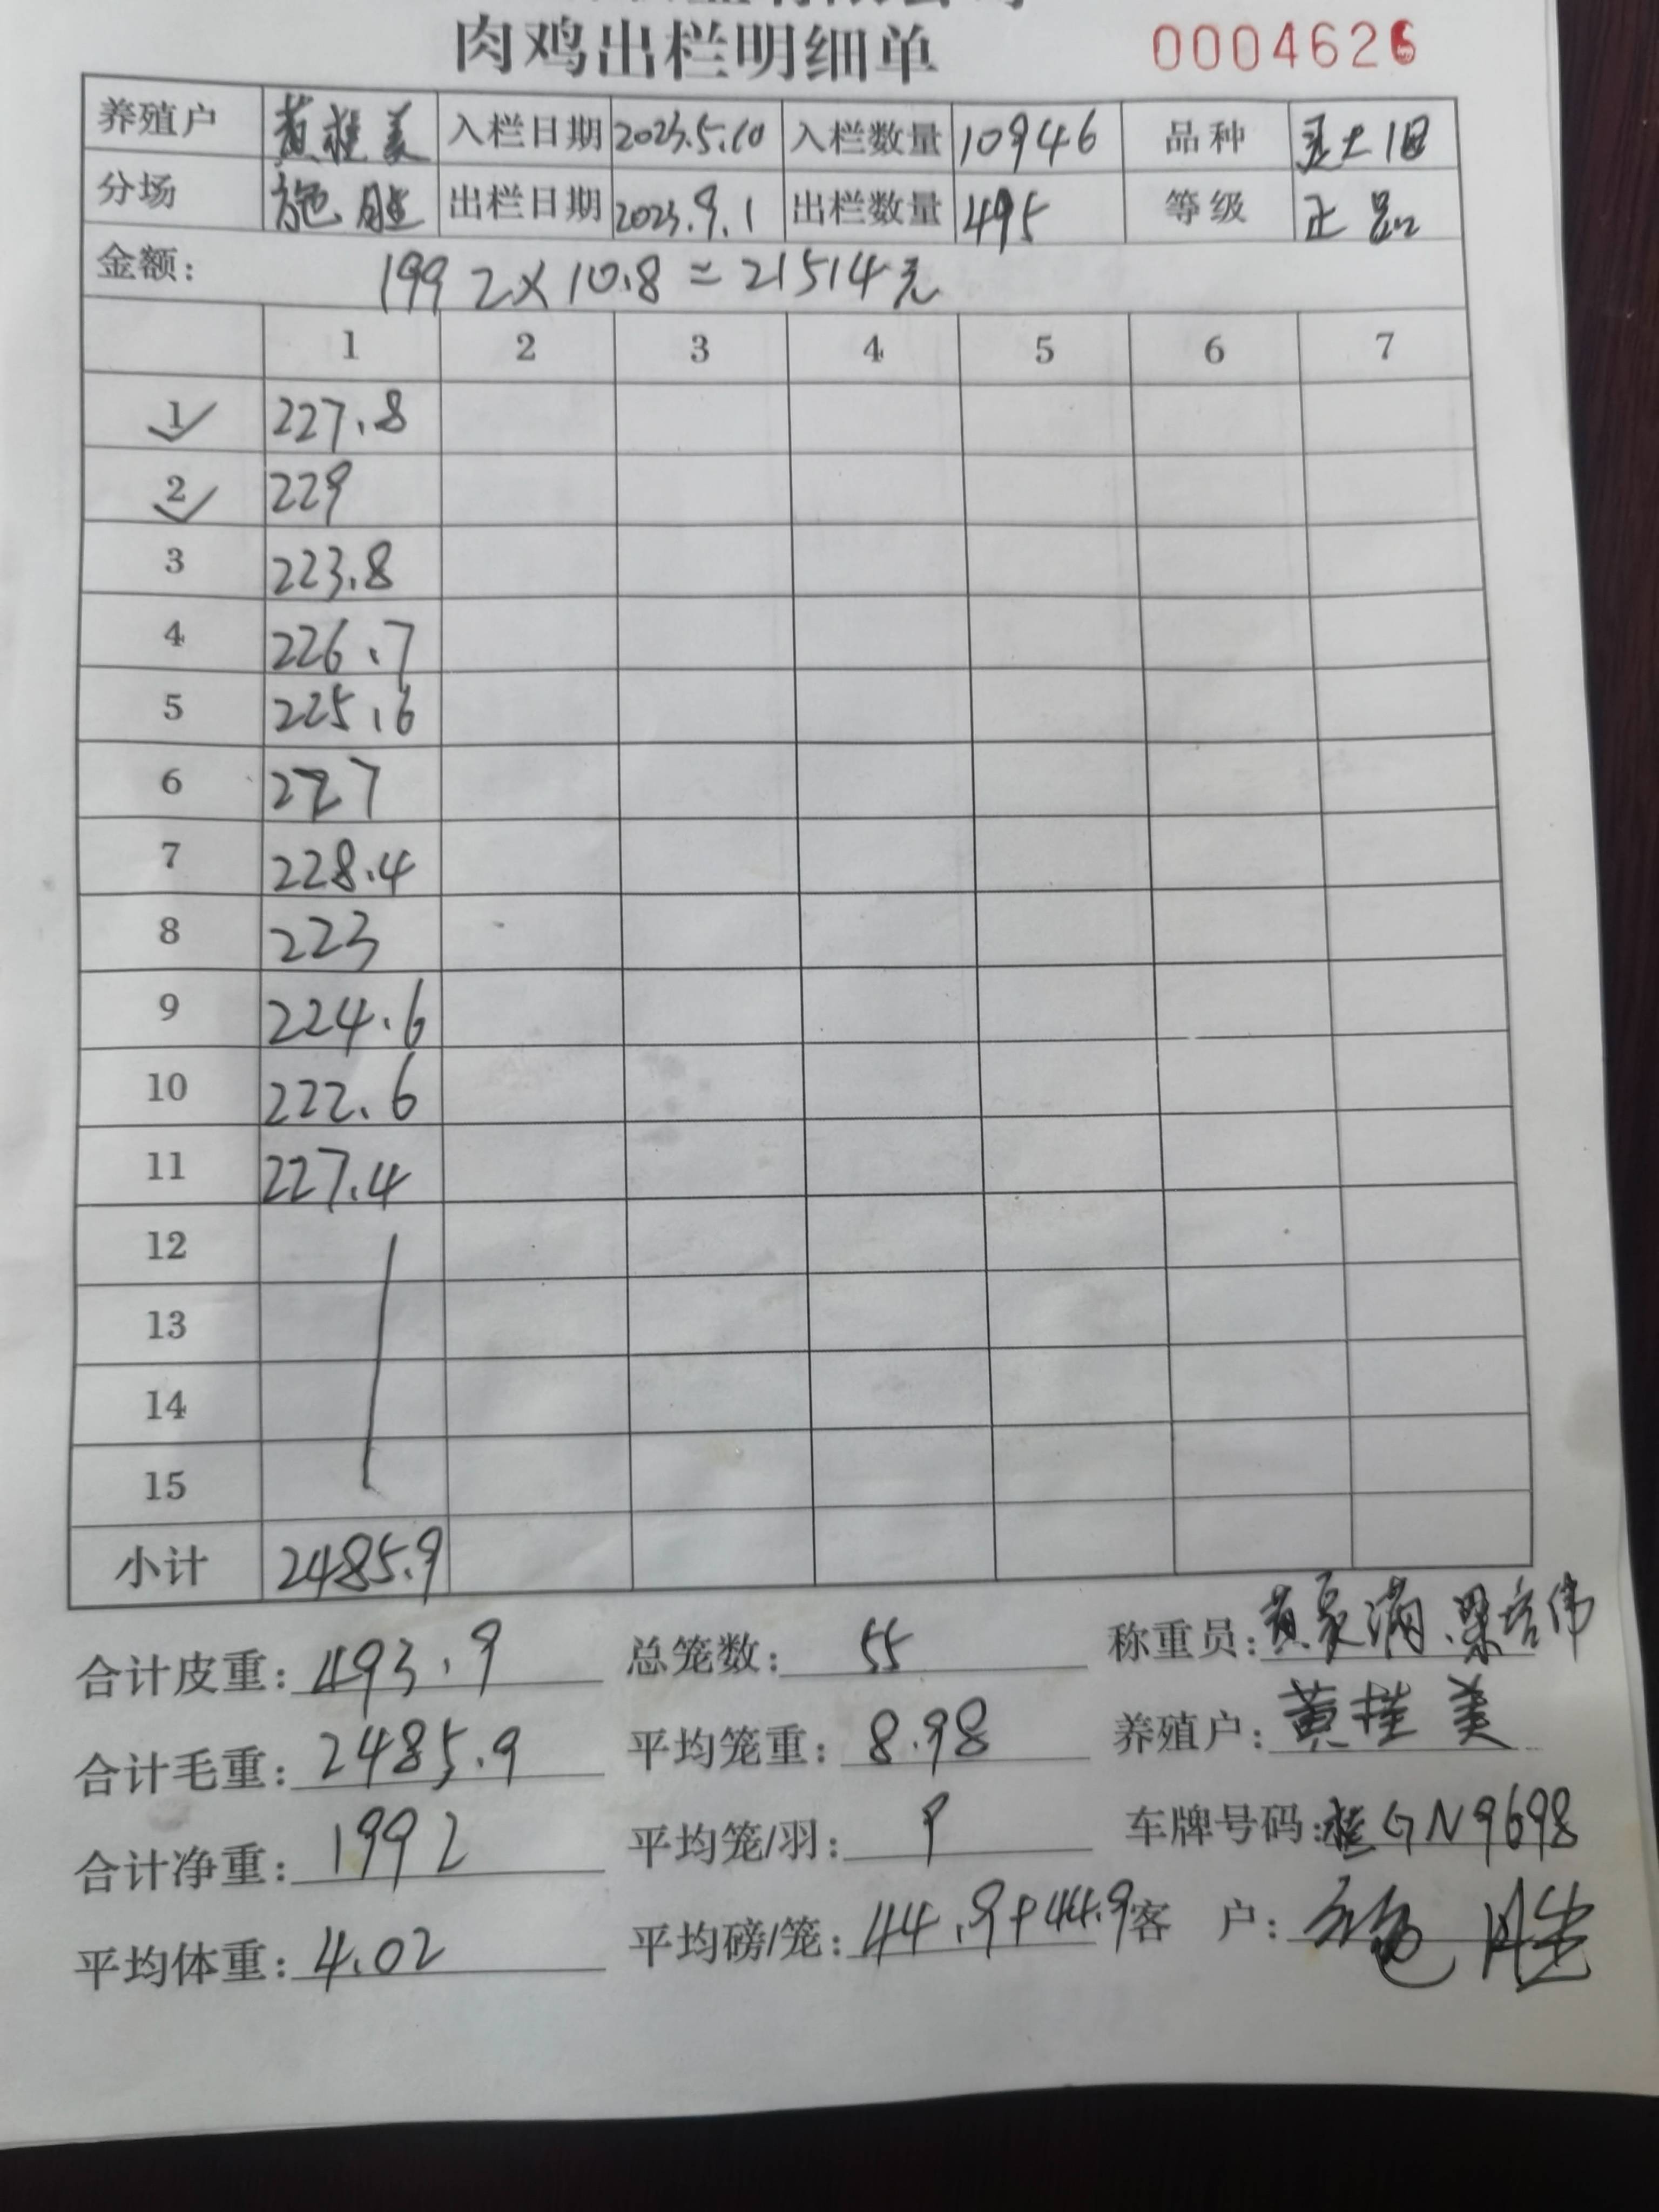 肉鸡出栏明细单 0004626
养殖户 黄桂美 入栏日期 2023.5.10 入栏数量 10946 品种
分场 施胜 出栏日期 2023.9.1 出栏数量 495 等级 正品
金额: 1992×10.8=21514元
1 2 3 4 5 6 7
1 227.8
2 229
3 223.8
4 226.7
5 225.6
6 227
7 228.4
8 223
9 224.6
10 222.6
11 227.4
12
13
14
15
小计 2485.9
合计皮重: 493.9 总笼数: 55 称重员: 黄家满.梁培伟
合计毛重: 2485.9 平均笼重: 8.98 养殖户: 黄桂美
合计净重: 1992 平均笼/羽: 9 车牌号码: 桂GN9698
平均体重: 4.02 平均磅/笼: 44.9+44.9 客 户: 施胜